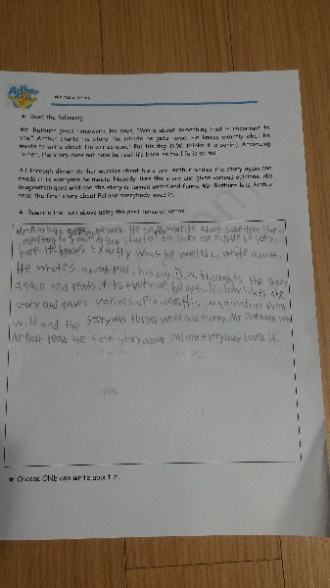 Arthur
★ Read the following.
Mr. Ratburn gives homework. He says, "Write about something that is important to
you." Arthur starts his story the minute he gets home. He knows exactly what he
wants to write about. He writes about Pal, his dog. D.W. thinks it is boring. According
to her, the story does not have to be real life
All through dinner Arthur worries about his story. Arthur writes the story again and
reads it to everyone he meets. Nobody likes the story and gives various opinions. His
imagination goes wild and the story is turned weird and funny. Mr. Ratburn lets Arthur
read the first story about Pal and everybody loves it.
★ Rewrite the text above using the past tense of verbs.
Mr. Ratburn homework. He said write about something
important to you. Arthur started his story the minute he gets
home. He knows exactly what he wanted to write about.
He wrotes about pal, his dog. D.W. thoughts the story
again and reads it to everyone he met. Nobody likes the
story and gaves various opinions. His imagination
wild and the story was turned weird and funny. Mr. Ratburn
Arthur read the first story about pal and everybody loves it.
★ Choose ONE and write about it.